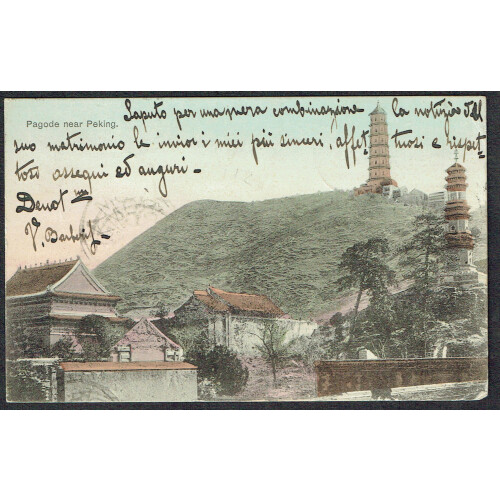 Pagode near Peking.
Saputo per una mera combinazione la notizia del
suo matrimonio le invio i miei più sinceri, affettuosi e rispet-
tosi ossequi ed auguri.-
Devot mo
V.